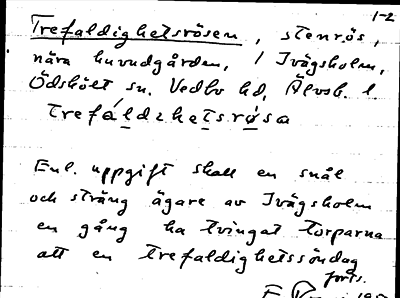 1-2
Trefaldighetsrösen, stenrös,
nära huvudgården, / Ivägsholm,
Ödsköts sn. Vedbo hd, Älvsb. l.
trefáldzhetsrø̀sa
Enl. uppgift skall en snål
och sträng ägare av Ivägsholm
en gång ha tvingat torparna
att en trefaldighetssöndag
forts.